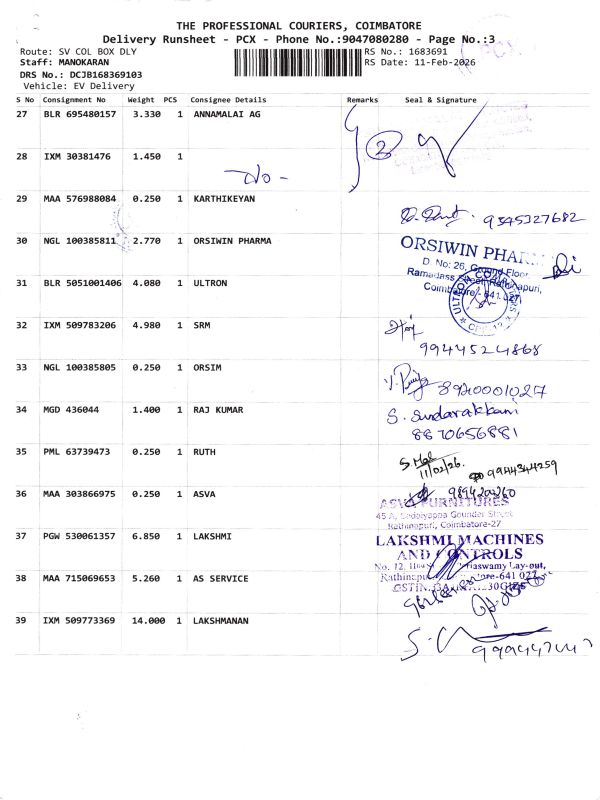 THE PROFESSIONAL COURIERS, COIMBATORE
Delivery Runsheet - PCX - Phone No.:9047080280 - Page No.:3
Route: SV COL BOX DLY RS No.: 1683691
Staff: MANOKARAN RS Date: 11-Feb-2026
DRS No.: DCJB168369103
Vehicle: EV Delivery
S No Consignment No Weight PCS Consignee Details Remarks Seal & Signature
27 BLR 695480157 3.330 1 ANNAMALAI AG
2
28 IXM 30381476 1.450 1
29 MAA 576988084 0.250 1 KARTHIKEYAN
9345327682
30 NGL 100385811 2.770 1 ORSIWIN PHARMA
ORSIWIN PHAR
D. No: 26, Ground Floor,
Ramadass Street, Rathinapuri,
Coimbatore - 641 027.
31 BLR 5051001406 4.080 1 ULTRON
32 IXM 509783206 4.980 1 SRM
9944524868
33 NGL 100385805 0.250 1 ORSIM
8920001027
34 MGD 436044 1.400 1 RAJ KUMAR
8870656881
35 PML 63739473 0.250 1 RUTH
11/02/26. 9944344259
36 MAA 303866975 0.250 1 ASVA
ASVA FURNITURES
Gounder Street
Rathinapuri, Coimbatore-27
37 PGW 530061357 6.850 1 LAKSHMI
LAKSHMI MACHINES
AND CONTROLS
No. 12, iaswamy Lay-out,
Rathinapuri ore-641 027
38 MAA 715069653 5.260 1 AS SERVICE
39 IXM 509773369 14.000 1 LAKSHMANAN